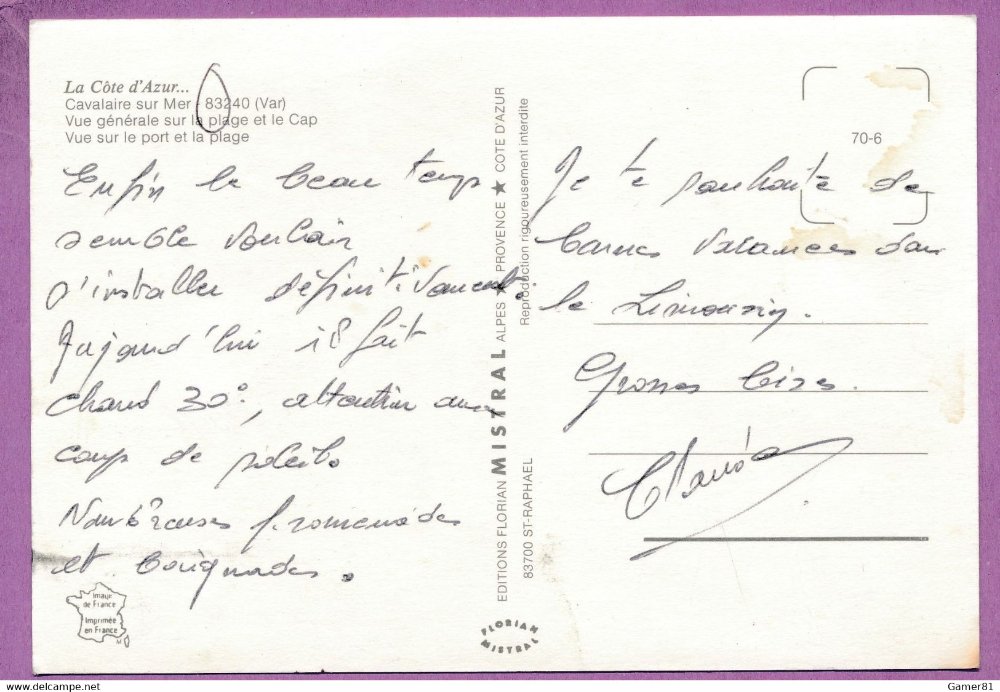 La Côte d'Azur...
Cavalaire sur Mer - 83240 (Var)
Vue générale sur la plage et le Cap
Vue sur le port et la plage
Enfin le beau temps
semble vouloir
s'installer définitivement.
Aujourd'hui il fait
chaud 30°, attention aux
coup de soleils
Nombreuses promenades
et baignades.
Image
de France
Imprimée
en France
EDITIONS FLORIAN MISTRAL ALPES ★ PROVENCE ★ COTE D'AZUR
83700 ST-RAPHAEL
Reproduction rigoureusement interdite
FLORIAN
MISTRAL
70-6
Je te souhaite de
bonnes vacances dans
le Limousin.
Grosses bises.
delcampe.net
Gamer81